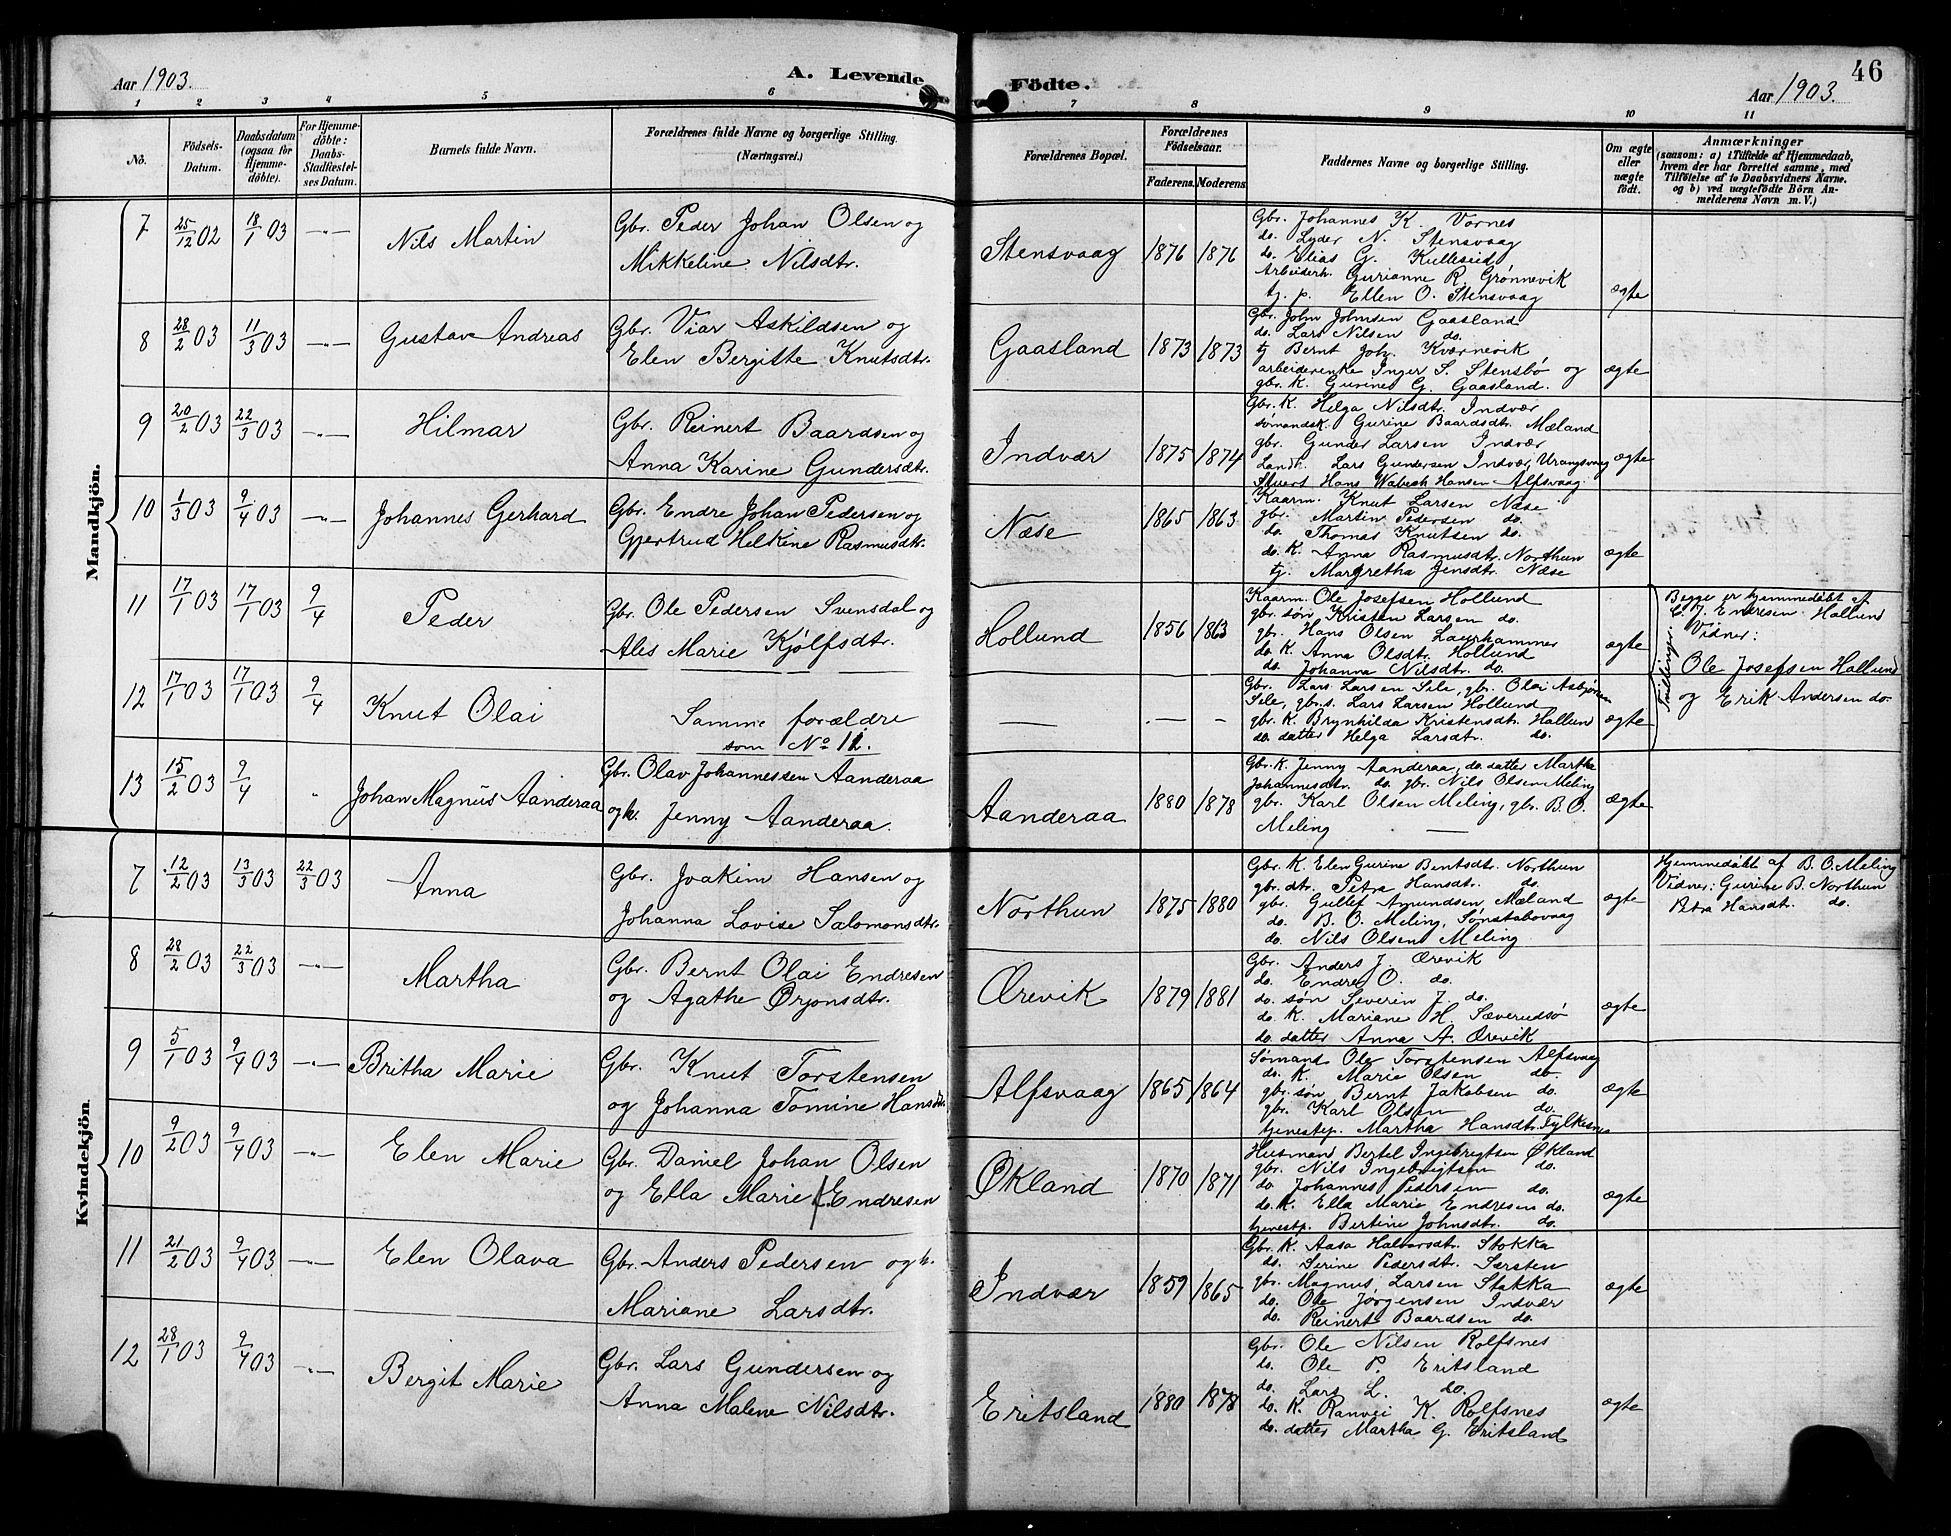 Aar 1903.
A. Levende
Födte.
Aar 1903.
46
1 2 3 4 5 6 7 8 9 10 11
No.
Födsels-
Datum.
Daabsdatum
(ogsaa for
Hjemme-
döbte).
For Hjemme-
döbte:
Daabs-
Stadfæstel-
ses Datum.
Barnets fulde Navn.
Forældrenes fulde Navne og borgerlige Stilling.
(Næringsvei.)
Forældrenes Bopæl.
Forældrenes
Födselsaar.
Faderens. Moderens.
Faddernes Navne og borgerlige Stilling.
Om ægte
eller
uægte
födt.
Anmærkninger
(saasom: a) i Tilfælde af Hjemmedaab,
hvem der har forrettet samme, med
Tilföielse af to Daabsvidners Navne.
og b) ved uægtefödte Börn An-
melderens Navn m. V.)
Mandkjön.
7 25/12 02 18/1 03 —"— Nils Martin
Gbr. Peder Johan Olsen og
Mikkeline Nilsdtr.
Stensvaag 1876 1876
Gbr. Johannes K. Vornes
do. Lyder N. Stensvaag
do. Elias G. Kulleseid
Arbeiderh. Gurianne R. Grønnevik
tj. p. Ellen O. Stensvaag
ægte
8 28/2 03 11/3 03 —"— Gustav Andreas
Gbr. Viar Askildsen og
Elen Bergitte Knutsdtr.
Gaasland 1873 1873
Gbr. John Johnsen Gaasland
do. Lars Nilsen do.
tj Bernt Joh. Kværnevik
arbeiderenke Inger S. Stensbø og
gbr. K. Gurine G. Gaasland.
ægte
9 20/2 03 22/3 03 —"— Hilmar
Gbr. Reinert Baardsen og
Anna Karine Gundersdtr.
Indvær 1875 1874
Gbr. K. Helga Nilsdtr. Indvær
sømandsk. Gurine Baardsdtr. Mæland
gbr. Gunder Larsen Indvær
Landh. Lars Gundersen Indvær, Urangsvaag
Hans Hansen Alfsvaag.
ægte
10 1/3 03 9/4 03 —"— Johannes Gerhard
Gbr. Endre Johan Pedersen og
Gjertrud Helkine Rasmusdtr.
Næse 1865 1863
Kaarm. Knut Larsen Næse
gbr. Martin Pedersen do.
do. Thomas Knutsen do.
do. K. Anna Rasmusdtr. Northun
tj. Margretha Jensdtr. Næse
ægte
11 17/1 03 17/1 03 9/4 Peder
Gbr. Ole Pedersen Svensdal og
Ales Marie Kjølfsdtr.
Hollund 1856 1863
Kaarm. Ole Josefsen Hollund
gbr. søn Kristen Larsen do.
gbr. Hans Olsen Laurhammer
do. K. Anna Olsdtr. Hollund
do. Johanna Nilsdtr. do.
ægte
Tvillinger.
Begge er hjemmedøbt af
C. J. Endresen Hallund
Vidner:
Ole Josefsen Hallund
og Erik Andersen do.
12 17/1 03 17/1 03 9/4 Knut Olai
Samme forældre
som No 11.
— — —
Gbr. Lars Larsen Sele, gbr. Olai Asbjørnsen
Sele, gbr.s. Lars Larsen Hollund
gbr. K. Brynhilda Kristensdtr. Hallund
do. datter Helga Larsdtr. do.
ægte
13 15/2 03 9/4 " Johan Magnus Aanderaa
Gbr. Olav Johannessen Aanderaa
og h. Jenny Aanderaa.
Aanderaa 1880 1878
Gbr. K. Jenny Aanderaa, do. datter Martha
Johannesdtr. do. gbr. Nils Olsen Meling
gbr. Karl Olsen Meling, gbr. B. O.
Meling —
ægte
Kvindekjön.
7 12/2 03 13/3 03 22/3 03 Anna
Gbr. Joakim Hansen og
Johanna Lovise Salomonsdtr.
Northun 1875 1880
Gbr. K. Elen Gurine Bentsdtr. Northun
gbr. dtr. Petra Hansdtr. do.
gbr. Gullef Amundsen Mæland
do. B. O. Meling, Sønstabovaag
do. Nils Olsen Meling.
ægte
Hjemmedøbt af B. O. Meling
Vidner: Gurine B. Northun
Petra Hansdt. do.
8 28/2 03 22/3 03 —"— Martha
Gbr. Bernt Olai Endresen
og Agathe Ørjonsdtr.
Ørevik 1879 1881
Gbr. Anders J. Ørevik
do. Endre O. do.
do. søn Severin J. do.
do. K. Mariane H. Sæverudsø
do. datter Anna A. Ørevik
ægte
9 5/1 03 9/4 03 —"— Britha Marie
Gbr. Knut Torstensen
og Johanna Tomine Hansdtr.
Alfsvaag 1865 1864
Sømand Ole Torstensen Alfsvaag
do. K. Marie Olsen do.
gbr. søn Bernt Jakobsen do.
gbr. Karl Olsen do.
tjenestep. Martha Hansdtr. Fylkesnes
ægte
10 9/2 03 9/4 03 —"— Elen Marie
Gbr. Daniel Johan Olsen
og Ella Marie Endresen
Økland 1870 1871
Husmand Bertel Ingebrigtsen Økland
gbr. Nils Ingebrigtsen do.
do Johannes Pedersen do.
do. K. Ella Marie Endresen do.
tjenestp. Bertine Johnsdtr. do.
ægte
11 21/2 03 9/4 03 —"— Elen Olava
Gbr. Anders Pedersen og h.
Mariane Larsdtr.
Indvær 1859 1865
Gbr. K. Aasa Halvorsdtr. Stokka
do. Serine Pedersdtr. Sørsten
gbr. Magnus Larsen Stakka
do. Ole Jørgensen Indvær
do. Reinert Baardsen do.
ægte
12 28/1 03 9/4 03 —"— Bergit Marie
Gbr. Lars Gundersen og
Anna Malene Nilsdtr.
Eritsland 1880 1878
Gbr. Ole Nilsen Rolfsnes
do. Ole P. Eritsland
do. Lars L. do.
do. K. Ranvei K. Rolfsnes
do. datter Martha G. Eritsland
ægte